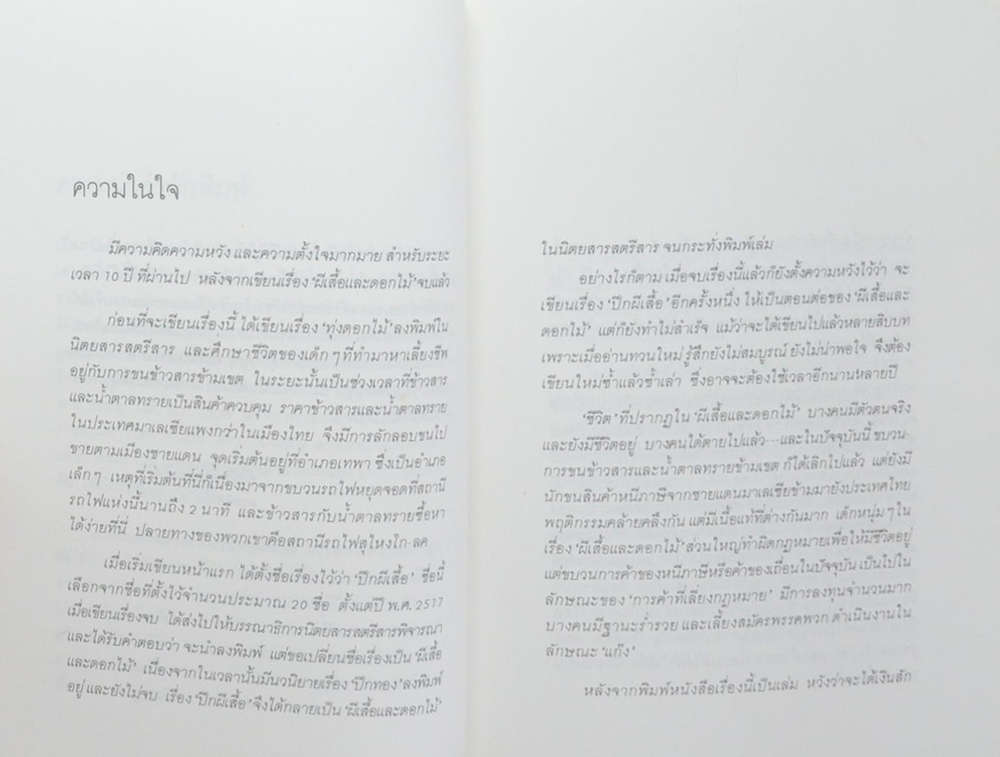 ความในใจ
มีความคิดความหวัง และความตั้งใจมากมาย สำหรับระยะ
เวลา 10 ปี ที่ผ่านไป หลังจากเขียนเรื่อง ‘ผีเสื้อและดอกไม้’ จบแล้ว
ก่อนที่จะเขียนเรื่องนี้ ได้เขียนเรื่อง ‘ทุ่งดอกไม้’ ลงพิมพ์ใน
นิตยสารสตรีสาร และศึกษาชีวิตของเด็กๆ ที่ทำมาหาเลี้ยงชีพ
อยู่กับการขนข้าวสารข้ามเขต ในระยะนั้นเป็นช่วงเวลาที่ข้าวสาร
และน้ำตาลทรายเป็นสินค้าควบคุม ราคาข้าวสารและน้ำตาลทราย
ในประเทศมาเลเซียแพงกว่าในเมืองไทย จึงมีการลักลอบขนไป
ขายตามเมืองชายแดน จุดเริ่มต้นอยู่ที่อำเภอเทพา ซึ่งเป็นอำเภอ
เล็กๆ เหตุที่เริ่มต้นที่นี่ก็เนื่องมาจากขบวนรถไฟหยุดจอดที่สถานี
รถไฟแห่งนี้นานถึง 2 นาที และข้าวสารกับน้ำตาลทรายซื้อหา
ได้ง่ายที่นี่ ปลายทางของพวกเขาคือสถานีรถไฟสุไหงโก-ลค
เมื่อเริ่มเขียนหน้าแรก ได้ตั้งชื่อเรื่องไว้ว่า ‘ปีกผีเสื้อ’ ชื่อนี้
เลือกจากชื่อที่ตั้งไว้จำนวนประมาณ 20 ชื่อ ตั้งแต่ปี พ.ศ. 2517
เมื่อเขียนเรื่องจบ ได้ส่งไปให้บรรณาธิการนิตยสารสตรีสารพิจารณา
และได้รับคำตอบว่า จะนำลงพิมพ์ แต่ขอเปลี่ยนชื่อเรื่องเป็น ‘ผีเสื้อ
และดอกไม้’ เนื่องจากในเวลานั้นมีนวนิยายเรื่อง ‘ปีกทอง’ ลงพิมพ์
อยู่ และยังไม่จบ เรื่อง ‘ปีกผีเสื้อ’ จึงได้กลายเป็น ‘ผีเสื้อและดอกไม้’
ในนิตยสารสตรีสาร จนกระทั่งพิมพ์เล่ม
อย่างไรก็ตาม เมื่อจบเรื่องนี้แล้วก็ยังตั้งความหวังไว้ว่า จะ
เขียนเรื่อง ‘ปีกผีเสื้อ’ อีกครั้งหนึ่ง ให้เป็นตอนต่อของ ‘ผีเสื้อและ
ดอกไม้’ แต่ก็ยังทำไม่สำเร็จ แม้ว่าจะได้เขียนไปแล้วหลายสิบบท
เพราะเมื่ออ่านทวนใหม่ รู้สึกยังไม่สมบูรณ์ ยังไม่น่าพอใจ จึงต้อง
เขียนใหม่ซ้ำแล้วซ้ำเล่า ซึ่งอาจจะต้องใช้เวลาอีกนานหลายปี
‘ชีวิต’ ที่ปรากฏใน ‘ผีเสื้อและดอกไม้’ บางคนมีตัวตนจริง
และยังมีชีวิตอยู่ บางคนได้ตายไปแล้ว---และในปัจจุบันนี้ ขบวน-
การขนข้าวสารและน้ำตาลทรายข้ามเขต ก็ได้เลิกไปแล้ว แต่ยังมี
นักขนสินค้าหนีภาษีจากชายแดนมาเลเซียข้ามมายังประเทศไทย
พฤติกรรมคล้ายคลึงกัน แต่มีเนื้อแท้ที่ต่างกันมาก เด็กหนุ่มๆ ใน
เรื่อง ‘ผีเสื้อและดอกไม้’ ส่วนใหญ่ทำผิดกฎหมายเพื่อให้มีชีวิตอยู่
แต่ขบวนการค้าของหนีภาษีหรือค้าของเถื่อนในปัจจุบัน เป็นไปใน
ลักษณะของ ‘การค้าที่เลี่ยงกฎหมาย’ มีการลงทุนจำนวนมาก
บางคนมีฐานะร่ำรวย และเลี้ยงสมัครพรรคพวก ดำเนินงานใน
ลักษณะ ‘แก๊ง’
หลังจากพิมพ์หนังสือเรื่องนี้เป็นเล่ม หวังว่าจะได้เงินสัก